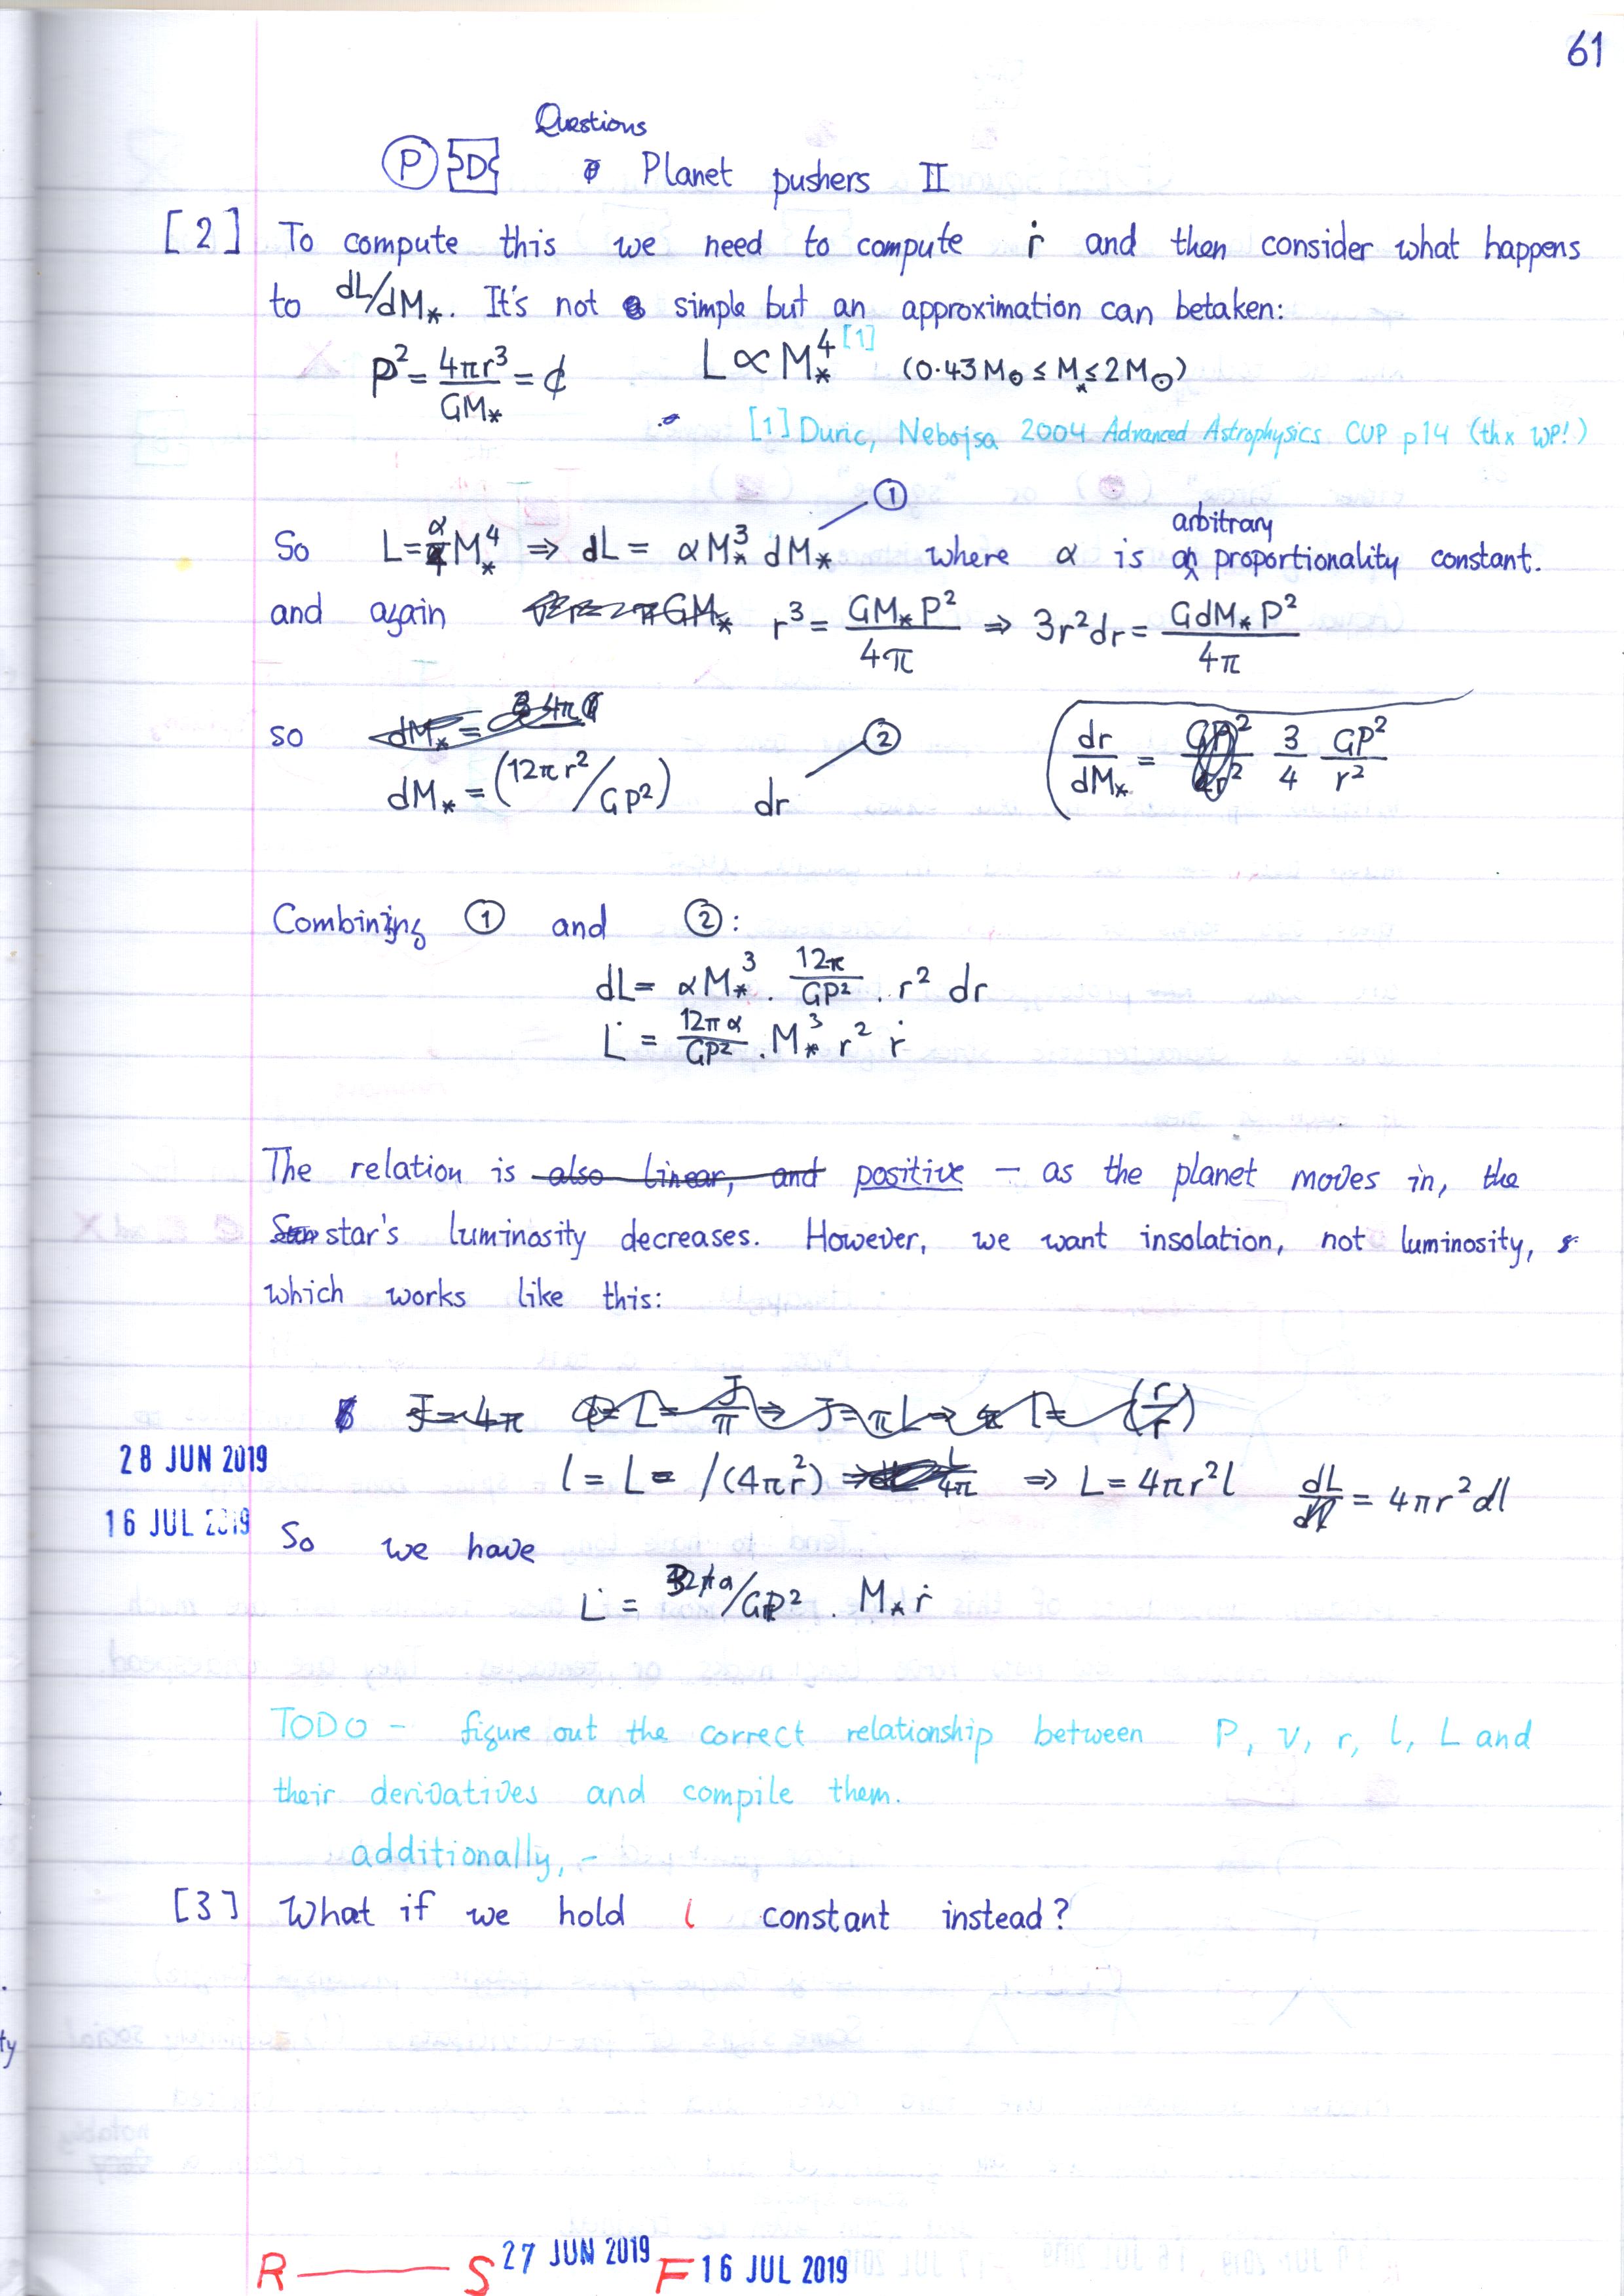 61
Questions
P D Planet pushers II
[2] To compute this we need to compute ṙ and then consider what happens
to dL/dM*. It's not simple but an approximation can betaken:
P² = 4πr³/GM* = ¢ L ∝ M*⁴ [1] (0.43 M⊙ ≤ M* ≤ 2M⊙)
[1] Duric, Nebojsa 2004 Advanced Astrophysics. CUP p14 (thx WP!)
①
arbitrary
So L = α/4 M*⁴ ⇒ dL = αM*³ dM* where α is an proportionality constant.
and again GM* r³ = GM*P²/4π ⇒ 3r²dr = GdM*P²/4π
so dM* = ② dr/dM* = 3/4 GP²/r²
dM* = (12πr²/GP²) dr
Combining ① and ②:
dL = αM*³ . 12π/GP² . r² dr
L̇ = 12πα/GP² . M*³ r² ṙ
The relation is also linear, and positive – as the planet moves in, the
Sun star's luminosity decreases. However, we want insolation, not luminosity,
which works like this:
J = 4π L = J/π ⇒ J = πL ⇒ l = (r/r)
28 JUN 2019
l = L = /(4πr²) ⇒ L/4π ⇒ L = 4πr²l dL/dl = 4πr²dl
16 JUL 2019
So we have
L̇ = /GP² . M* ṙ
TODO – figure out the correct relationship between P, v, r, l, L and
their derivatives and compile them.
additionally, –
[3] What if we hold l constant instead?
ty
R S 27 JUN 2019 F 16 JUL 2019